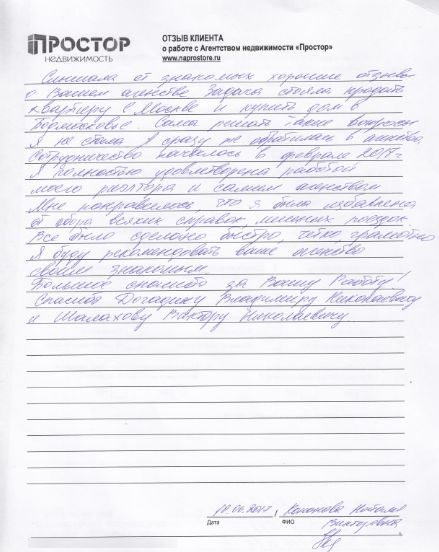 ПРОСТОР
НЕДВИЖИМОСТЬ
ОТЗЫВ КЛИЕНТА
о работе с Агентством недвижимости «Простор»
www.naprostore.ru
Слышала от знакомых хорошие отзывы
о Вашем агенстве. Задача стояла продать
квартиру в Москве и купить дом в
Подмосковье. Сама решать такие вопросы
Я не стала. Я сразу же обратилась в агенство
Сотрудничество началось в феврале 2017 г
Я полностью удовлетворена работой
моего риэлтора и самим агенством
Мне понравилось, что я была избавлена
от сбора всяких справок, лишних поездок.
Всё было сделано быстро, чётко, грамотно
Я буду рекомендовать ваше агенство
своим знакомым.
Большое спасибо за Вашу Работу!
Спасибо Владимиру Николаевичу
и Малахову Виктору Николаевичу
2017 / Наталия
Дата ФИО
Викторовна